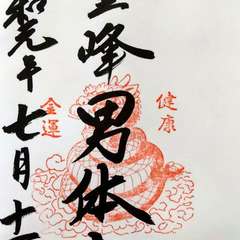 健康
峰男体
金運
和元年七月十